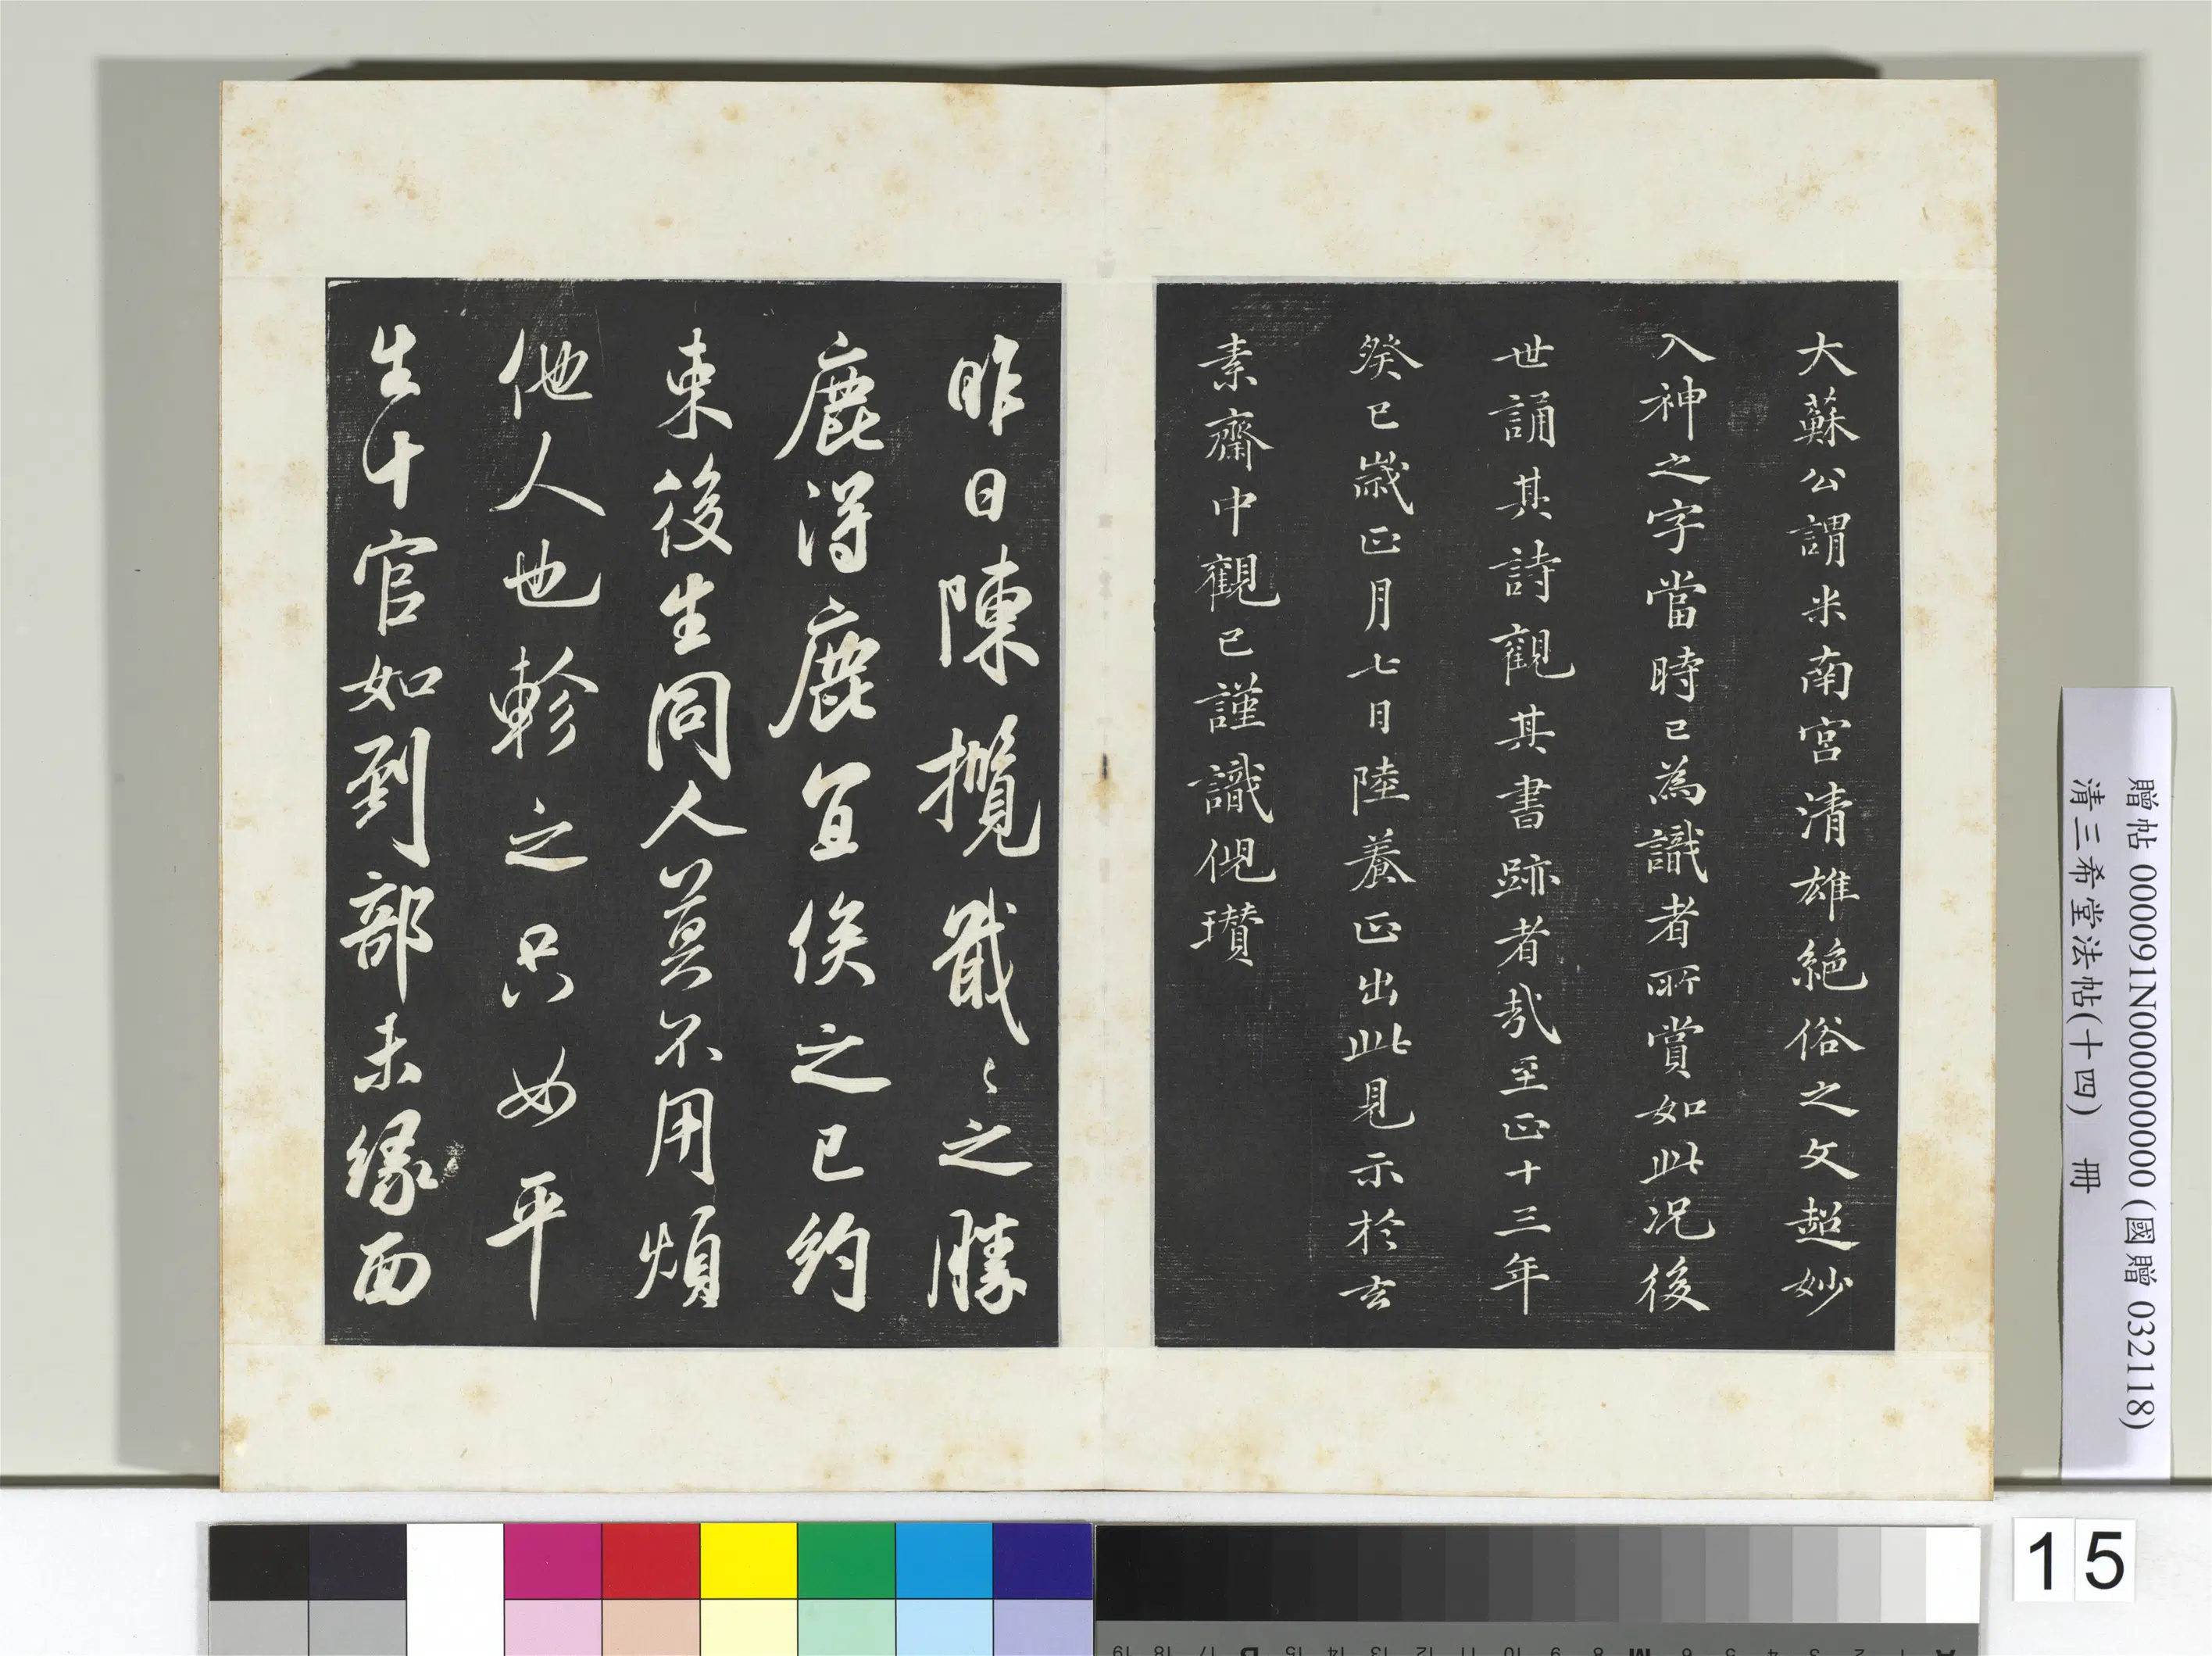 大蘇公謂米南宮清雄絶俗之文超妙
入神之字當時已為識者所賞如此況後
世誦其詩觀其書跡者哉至正十三年
癸巳歲正月七日陸養正出此見示於玄
素齋中觀已謹識倪瓚
昨日陳攬戢戢之勝
鹿得鹿宜俟之已約
束後生同人莫不用煩
他人也軫之只如平
生十官如到部未緣面
贈帖 000091N000000000 (國贈 032118)
清三希堂法帖(十四) 冊
15